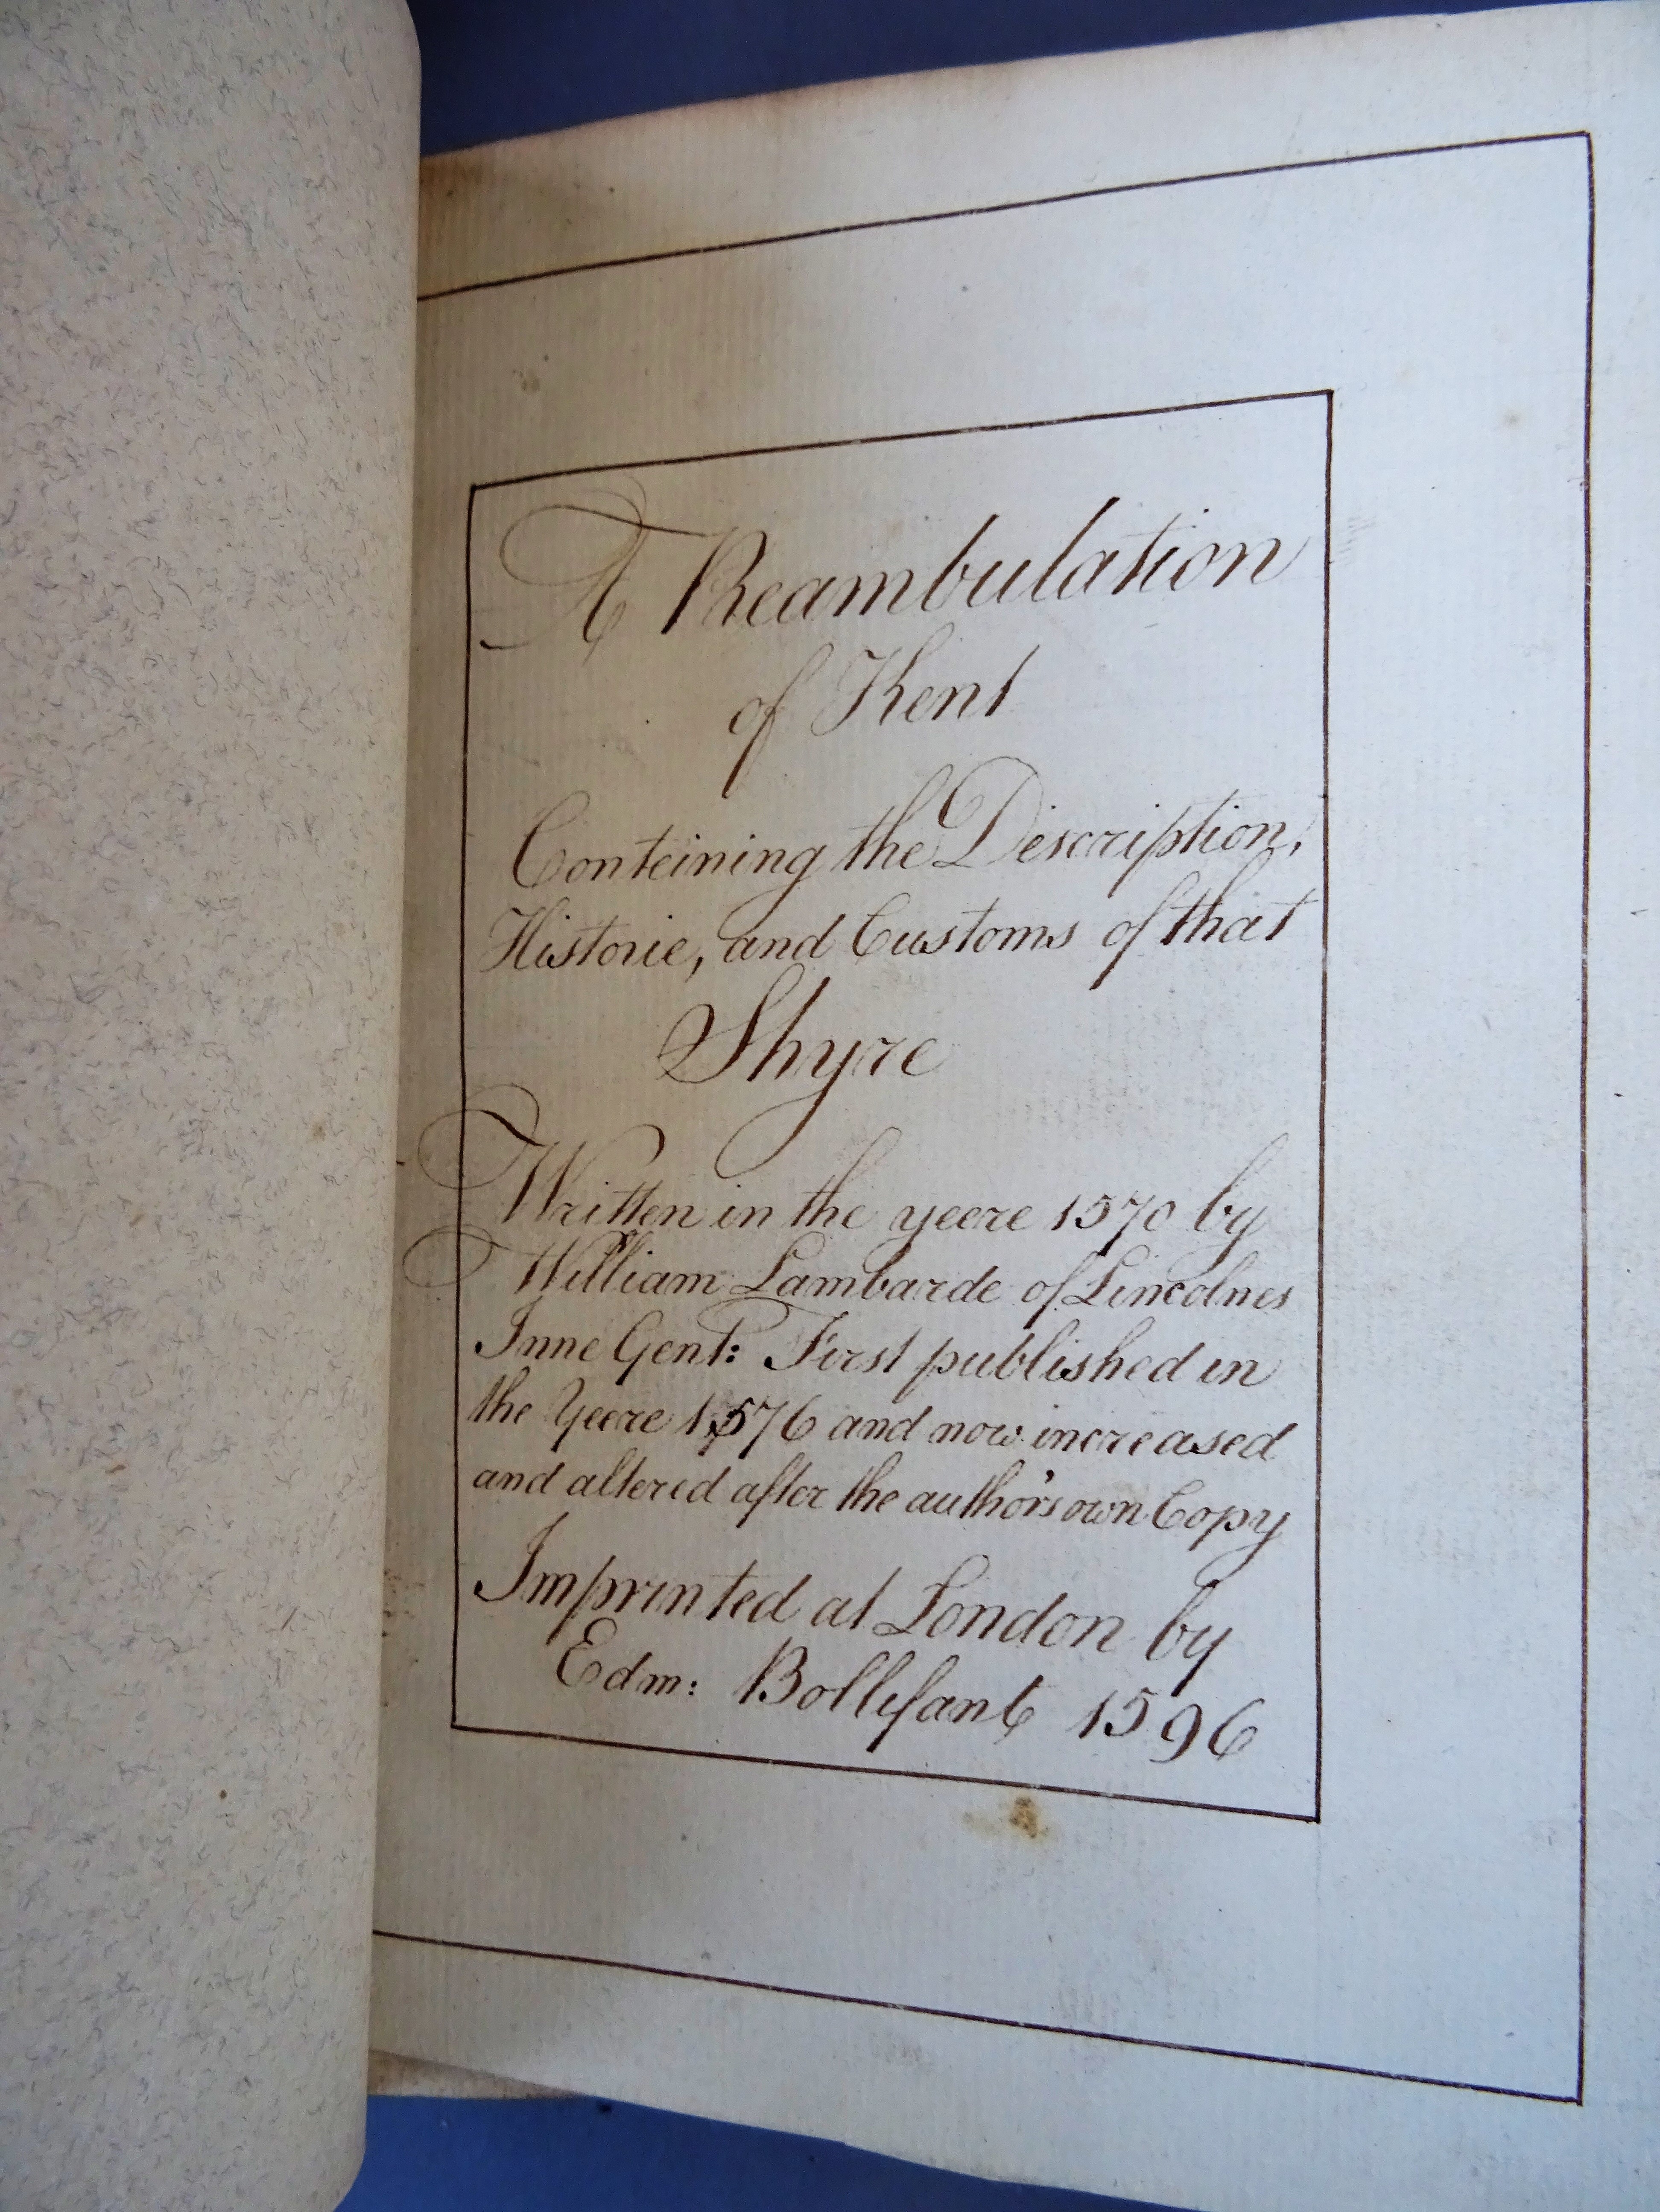 A Reambulation
of Kent
Conteining the Description,
Historie, and Customs of that
Shyre
Written in the yeere 1570 by
William Lambarde of Lincolnes
Inne Gent: First published in
the Yeere 1576 and now increased
and altered after the author's own Copy
Imprinted at London by
Edm: Bollifant 1596